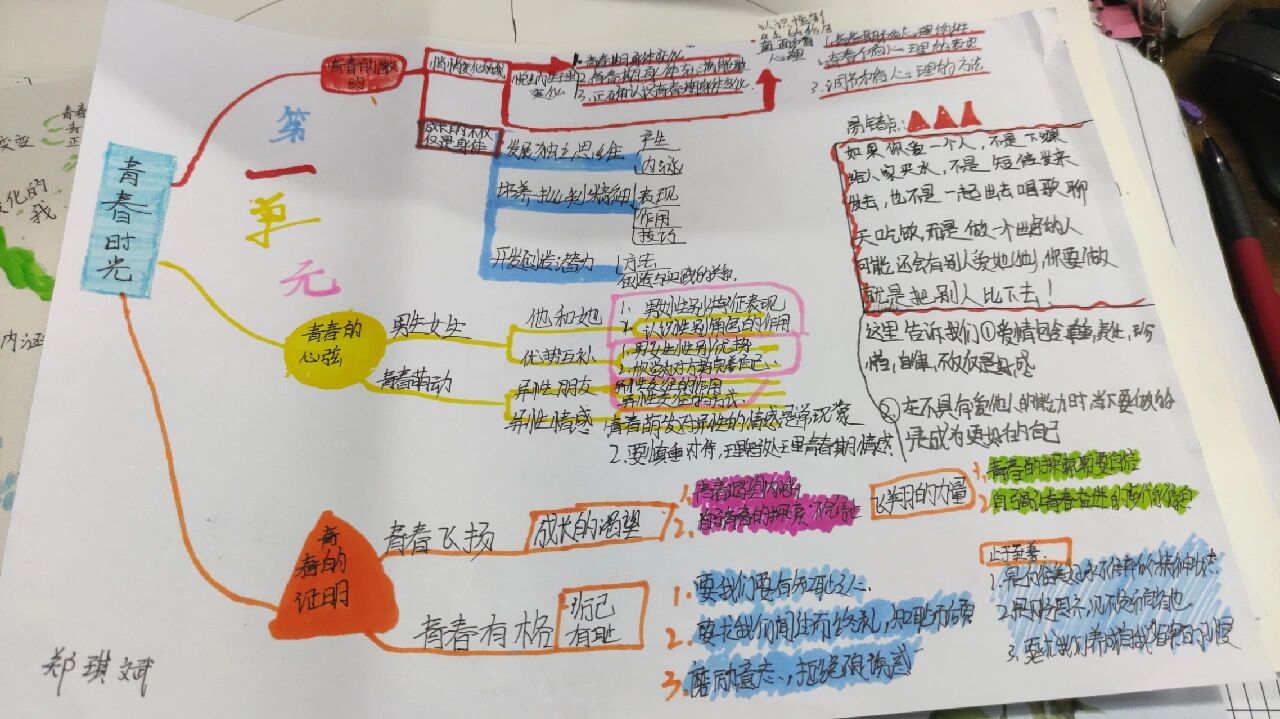 青春时光
第
一
单
元
青春的邀约
悄悄变化的我
成长的不仅仅是身体
悄悄的生理变化
1. 青春期身体变化
2. 青春期身体充满能量
3. 正确认识青春期身体变化
心理
1. 青春期矛盾心理
2. 青春矛盾心理的表现
3. 调节矛盾心理的方法
发展独立思维
产生
内涵
培养批判精神
表现
作用
技巧
开发创造潜力
方法
创造与实践的关系
青春的心弦
男生女生
他和她
1. 男女性别特征表现
2. 认识性别角色的作用
优势互补
1. 男女生性别优势
2. 欣赏对方完善自己
青春萌动
异性朋友
异性交往的作用
异性交往的方式
异性情感
青春萌发对异性的情感是正常现象
2. 要慎重对待，理智处理青春期情感
易错点：
如果你爱一个人，不是下课
给人家买水，不是短信发来
发去，也不是一起出去唱歌聊
天吃饭，而是做一个出色的人
可能还会有别人爱她(他)，你要做
就是把别人比下去！
这里告诉我们①爱情包含
自律，不仅仅是
② 在不具有爱他人的能力时，当下要做的
是成为更好的自己
青春的证明
青春飞扬
成长的渴望
1. 青春
2. 自己青春的探索不停止
飞翔的力量
1. 青春的探索需要自信
2. 自强让青春奋进的
青春有格
行己有耻
1. 要我们要有知耻之心
2. 要求我们
3. 磨砺意志，拒绝不良诱惑
止于至善
1. 是精神状态
2.
3. 要求我们养成自我省察的习惯
郑琪斌
变
化的
我
内涵